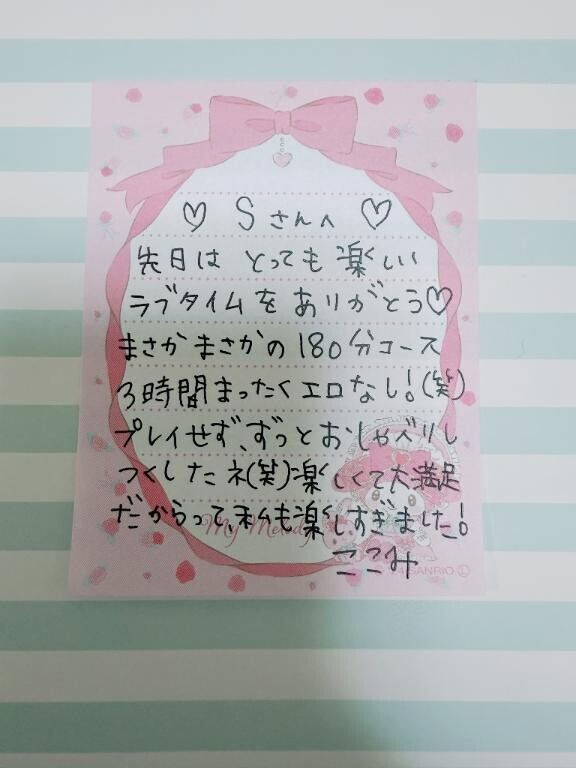 ♡ Sさんへ ♡
先日は とっても 楽しい
ラブタイムを ありがとう♡
まさか まさかの 180分コース
3時間まったくエロなし!(笑)
プレイせず、ずっとおしゃべりし
つくしたネ(笑)楽しくて大満足
だからって、私も楽しすぎました!
ここみ
My Melody
SANRIO Ⓛ